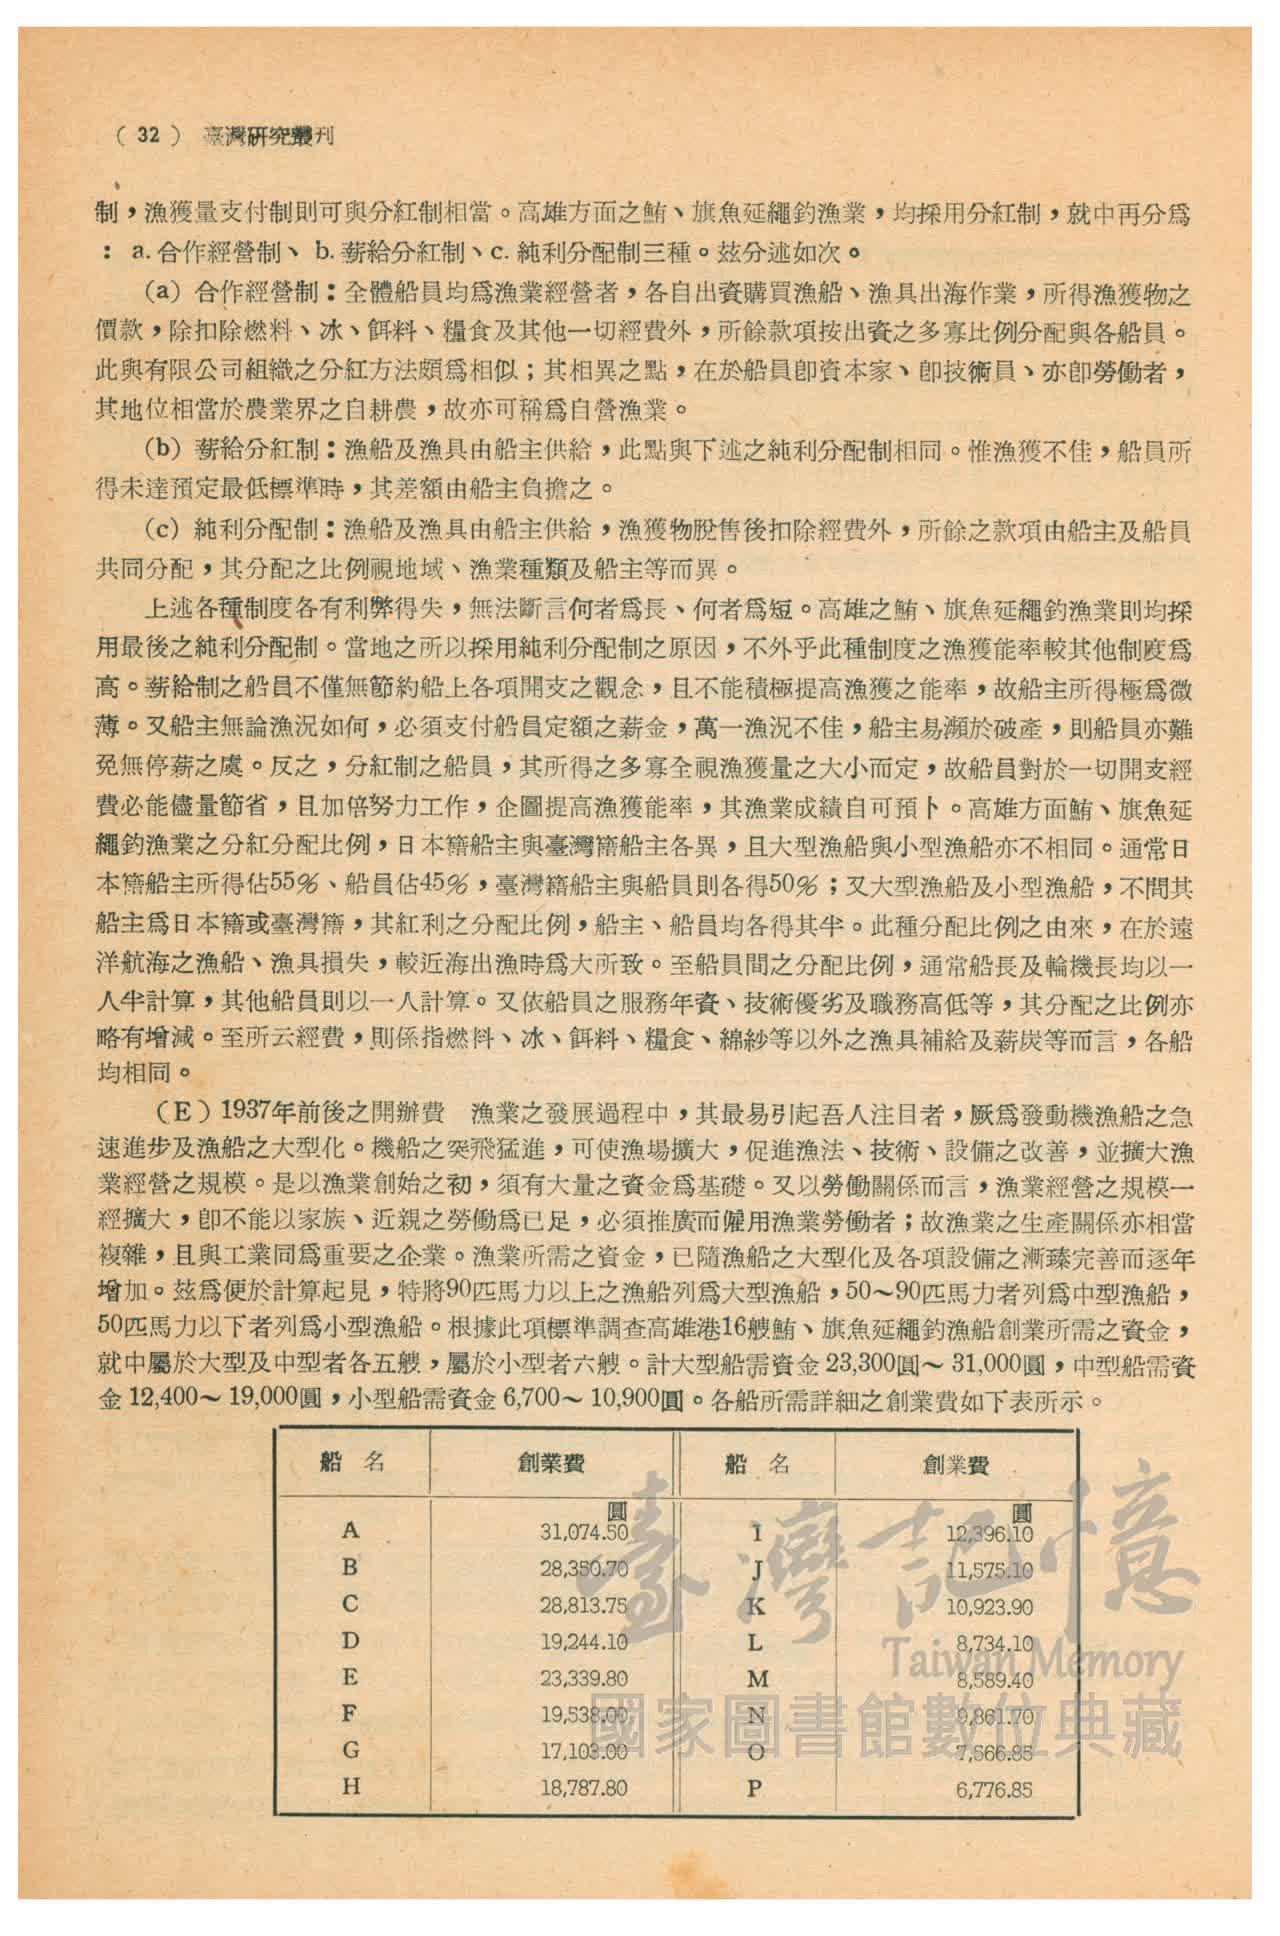 ( 32 ) 臺灣研究叢刊
制，漁獲量支付制則可與分紅制相當。高雄方面之鮪、旗魚延繩釣漁業，均採用分紅制，就中再分爲
：a. 合作經營制、b. 薪給分紅制、c. 純利分配制三種。玆分述如次。
(a) 合作經營制：全體船員均爲漁業經營者，各自出資購買漁船、漁具出海作業，所得漁獲物之
價款，除扣除燃料、冰、餌料、糧食及其他一切經費外，所餘款項按出資之多寡比例分配與各船員。
此與有限公司組織之分紅方法頗爲相似；其相異之點，在於船員卽資本家、卽技術員、亦卽勞働者，
其地位相當於農業界之自耕農，故亦可稱爲自營漁業。
(b) 薪給分紅制：漁船及漁具由船主供給，此點與下述之純利分配制相同。惟漁獲不佳，船員所
得未達預定最低標準時，其差額由船主負擔之。
(c) 純利分配制：漁船及漁具由船主供給，漁獲物脫售後扣除經費外，所餘之款項由船主及船員
共同分配，其分配之比例視地域、漁業種類及船主等而異。
上述各種制度各有利弊得失，無法斷言何者爲長、何者爲短。高雄之鮪、旗魚延繩釣漁業則均採
用最後之純利分配制。當地之所以採用純利分配制之原因，不外乎此種制度之漁獲能率較其他制度爲
高。薪給制之船員不僅無節約船上各項開支之觀念，且不能積極提高漁獲之能率，故船主所得極爲微
薄。又船主無論漁況如何，必須支付船員定額之薪金，萬一漁況不佳，船主易瀕於破產，則船員亦難
免無停薪之虞。反之，分紅制之船員，其所得之多寡全視漁獲量之大小而定，故船員對於一切開支經
費必能儘量節省，且加倍努力工作，企圖提高漁獲能率，其漁業成績自可預卜。高雄方面鮪、旗魚延
繩釣漁業之分紅分配比例，日本籍船主與臺灣籍船主各異，且大型漁船與小型漁船亦不相同。通常日
本籍船主所得佔55%、船員佔45%，臺灣籍船主與船員則各得50%；又大型漁船及小型漁船，不問其
船主爲日本籍或臺灣籍，其紅利之分配比例，船主、船員均各得其半。此種分配比例之由來，在於遠
洋航海之漁船、漁具損失，較近海出漁時爲大所致。至船員間之分配比例，通常船長及輪機長均以一
人半計算，其他船員則以一人計算。又依船員之服務年資、技術優劣及職務高低等，其分配之比例亦
略有增減。至所云經費，則係指燃料、冰、餌料、糧食、綿紗等以外之漁具補給及薪炭等而言，各船
均相同。
(E) 1937年前後之開辦費　漁業之發展過程中，其最易引起吾人注目者，厥爲發動機漁船之急
速進步及漁船之大型化。機船之突飛猛進，可使漁場擴大，促進漁法、技術、設備之改善，並擴大漁
業經營之規模。是以漁業創始之初，須有大量之資金爲基礎。又以勞働關係而言，漁業經營之規模一
經擴大，卽不能以家族、近親之勞働爲已足，必須推廣而僱用漁業勞働者；故漁業之生產關係亦相當
複雜，且與工業同爲重要之企業。漁業所需之資金，已隨漁船之大型化及各項設備之漸臻完善而逐年
增加。玆爲便於計算起見，特將90匹馬力以上之漁船列爲大型漁船，50～90匹馬力者列爲中型漁船，
50匹馬力以下者列爲小型漁船。根據此項標準調查高雄港16艘鮪、旗魚延繩釣漁船創業所需之資金，
就中屬於大型及中型者各五艘，屬於小型者六艘。計大型船需資金 23,300圓～ 31,000圓，中型船需資
金 12,400～ 19,000圓，小型船需資金 6,700～ 10,900圓。各船所需詳細之創業費如下表所示。
船 名　創業費　船 名　創業費
圓　圓
A 31,074.50 I 12,396.10
B 28,350.70 J 11,575.10
C 28,813.75 K 10,923.90
D 19,244.10 L 8,734.10
E 23,339.80 M 8,589.40
F 19,538.00 N 9,861.70
G 17,103.00 O 7,566.85
H 18,787.80 P 6,776.85
臺灣記憶
Taiwan Memory
國家圖書館數位典藏